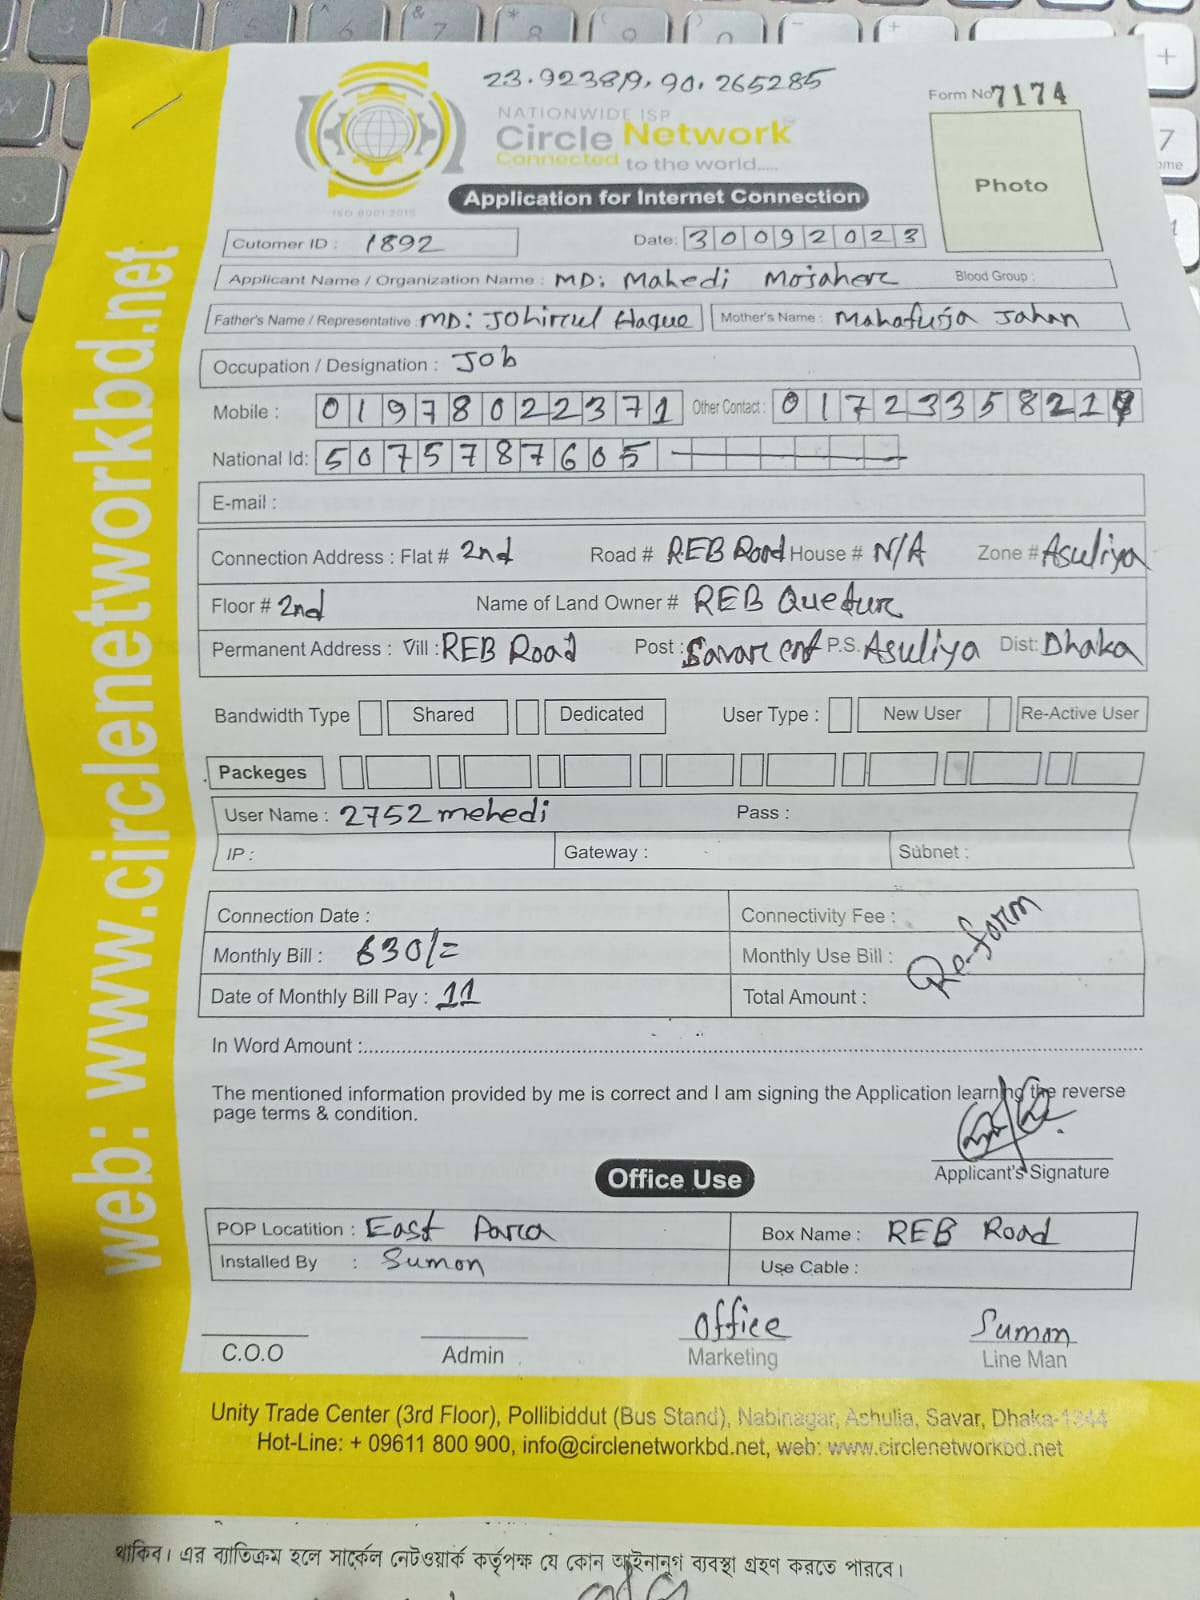 23.923819, 90.265285
Form No 7174
NATIONWIDE ISP
Circle Network
Connected to the world.....
ISO 9001:2015
Photo
Application for Internet Connection
Cutomer ID : 1892 Date: 30092023
Applicant Name / Organization Name : MD: Mahedi Mojaher Blood Group :
Father's Name / Representative : MD: Johirul Haque Mother's Name : Mahafuja Jahan
Occupation / Designation : Job
Mobile : 01978022371 Other Contact : 0172335821
National Id: 5075787605
E-mail :
Connection Address : Flat # 2nd Road # REB Road House # N/A Zone # Asuliya
Floor # 2nd Name of Land Owner # REB Quetur
Permanent Address : Vill : REB Road Post : Savar cnt P.S. Asuliya Dist: Dhaka
Bandwidth Type Shared Dedicated User Type : New User Re-Active User
Packeges
User Name : 2752mehedi Pass :
IP : Gateway : Subnet :
Connection Date : Connectivity Fee :
Monthly Bill : 630/= Monthly Use Bill :
Re-form
Date of Monthly Bill Pay : 11 Total Amount :
In Word Amount :
The mentioned information provided by me is correct and I am signing the Application learning the reverse
page terms & condition.
Applicant's Signature
Office Use
POP Locatition : East Para Box Name : REB Road
Installed By : Sumon Use Cable :
Office Sumon
C.O.O Admin Marketing Line Man
Unity Trade Center (3rd Floor), Pollibiddut (Bus Stand), Nabinagar, Ashulia, Savar, Dhaka-1344
Hot-Line: + 09611 800 900, info@circlenetworkbd.net, web: www.circlenetworkbd.net
web: www.circlenetworkbd.net
থাকিব। এর ব্যতিক্রম হলে সার্কেল নেটওয়ার্ক কর্তৃপক্ষ যে কোন আইনানুগ ব্যবস্থা গ্রহণ করতে পারবে।